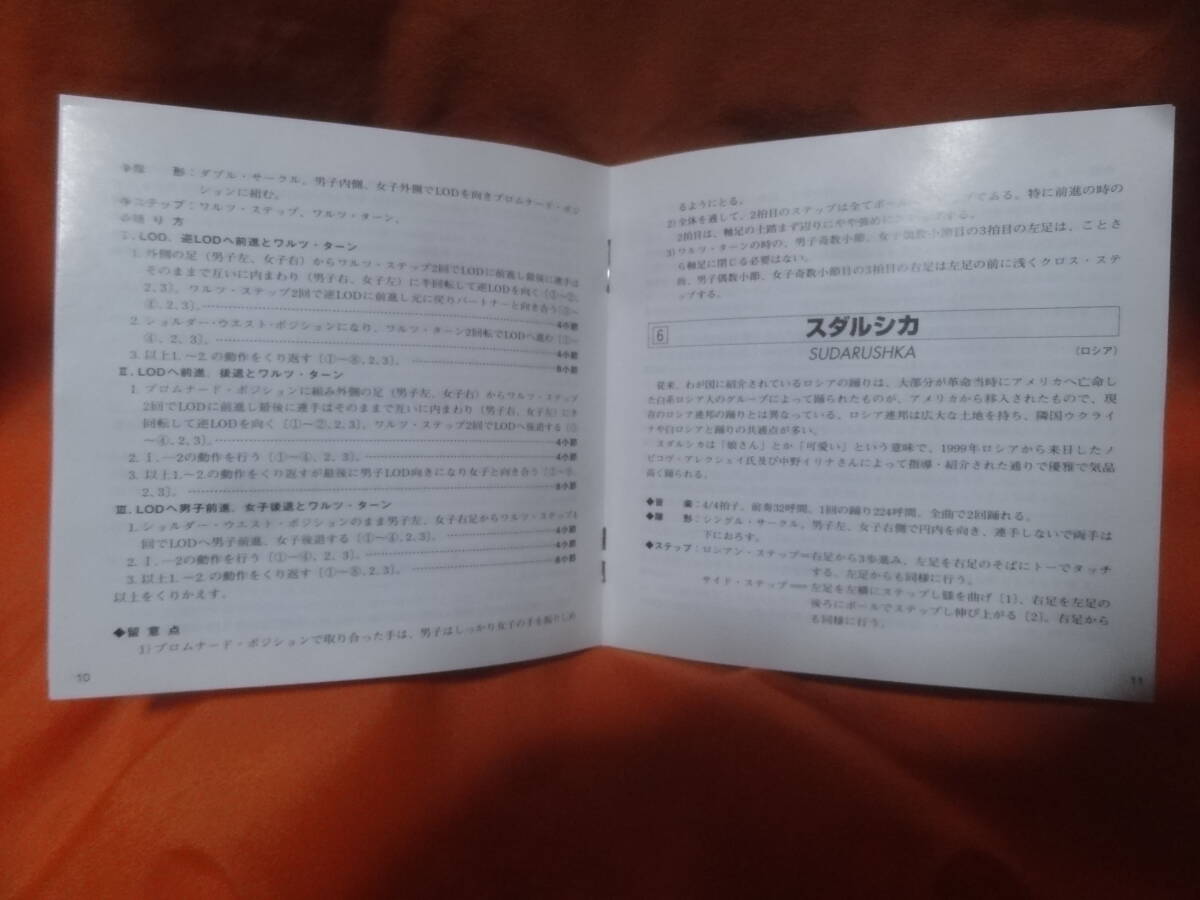 ◆隊　形：ダブル・サークル。男子内側、女子外側でLODを向きプロムナード・ポジ
ションに組む。
◆ステップ：ワルツ・ステップ、ワルツ・ターン。
◆踊り方
Ⅰ. LOD、逆LODへ前進とワルツ・ターン
1. 外側の足（男子左、女子右）からワルツ・ステップ2回でLODに前進し最後に連手は
そのままで互いに内まわり（男子右、女子左）に半回転して逆LODを向く〔①～②、
2、3〕。ワルツ・ステップ2回で逆LODに前進し元に戻りパートナーと向き合う〔③～
④、2、3〕。 4小節
2. ショルダー・ウエスト・ポジションになり、ワルツ・ターン2回転でLODへ進む〔①～
④、2、3〕。 4小節
3. 以上1.～2.の動作をくり返す〔①～⑧、2、3〕。 8小節
Ⅱ. LODへ前進、後退とワルツ・ターン
1. プロムナード・ポジションに組み外側の足（男子左、女子右）からワルツ・ステップ
2回でLODに前進し最後に連手はそのままで互いに内まわり（男子右、女子左）に半
回転して逆LODを向く〔①～②、2、3〕。ワルツ・ステップ2回でLODへ後退する〔③
～④、2、3〕。 4小節
2. Ⅰ.―2の動作を行う〔①～④、2、3〕。 4小節
3. 以上1.～2.の動作をくり返すが最後に男子LOD向きになり女子と向き合う〔①～⑧、
2、3〕。 8小節
Ⅲ. LODへ男子前進、女子後退とワルツ・ターン
1. ショルダー・ウエスト・ポジションのまま男子左、女子右足からワルツ・ステップ4
回でLODへ男子前進、女子後退する〔①～④、2、3〕。 4小節
2. Ⅰ.―2の動作を行う〔①～④、2、3〕。 4小節
3. 以上1.～2.の動作をくり返す〔①～⑧、2、3〕。 8小節
以上をくりかえす。
◆留意点
1) プロムナード・ポジションで取り合った手は、男子はしっかり女子の手を握りしめ
10
るようにとる。
2) 全体を通して、2拍目のステップは全てボール・ステップである。特に前進の時の
2拍目は、軸足の土踏まず辺りにやや強めにステップする。
3) ワルツ・ターンの時の、男子奇数小節、女子偶数小節目の3拍目の左足は、ことさ
ら軸足に閉じる必要はない。
尚、男子偶数小節、女子奇数小節目の3拍目の右足は左足の前に浅くクロス・ステ
ップする。
6 スダルシカ
SUDARUSHKA
（ロシア）
従来、わが国に紹介されているロシアの踊りは、大部分が革命当時にアメリカへ亡命し
た白系ロシア人のグループによって踊られたものが、アメリカから移入されたもので、現
在のロシア連邦の踊りとは異なっている。ロシア連邦は広大な土地を持ち、隣国ウクライ
ナや白ロシアと踊りの共通点が多い。
スダルシカは「娘さん」とか「可愛い」という意味で、1999年ロシアから来日したノ
ビコヴ・アレクシェイ氏及び中野イリナさんによって指導・紹介された通りで優雅で気品
高く踊られる。
◆音　楽：4/4拍子、前奏32呼間、1回の踊り224呼間、全曲で2回踊れる。
◆隊　形：シングル・サークル、男子左、女子右側で円内を向き、連手しないで両手は
下におろす。
◆ステップ：ロシアン・ステップ＝右足から3歩進み、左足を右足のそばにトーでタッチ
する。左足からも同様に行う。
サイド・ステップ＝左足を左横にステップし膝を曲げ〔1〕、右足を左足の
後ろにボールでステップし伸び上がる〔2〕。右足から
も同様に行う。
11